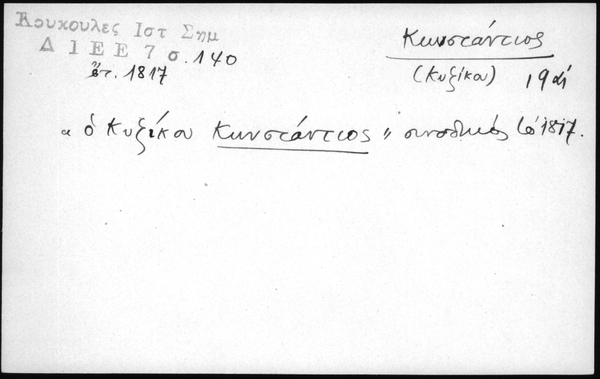 Κουκουλες Ιστ Σημ
Δ Ι Ε Ε 7 σ. 140
ἔτ. 1817
Κωνστάντιος
(Κυζίκου) 19 αἱ
"ὁ Κυζίκου Κωνστάντιος" συνοδικός τὸ 1817.